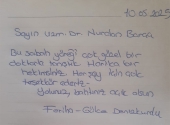 10.05.2025
Sayın uzm. Dr. Nurdan Barça
Bu sabah yüreği çok güzel bir
doktorla tanıştık. Harika bir
hekimsiniz. Her şey için çok
teşekkür ederiz.
Yolunuz, bahtınız açık olsun